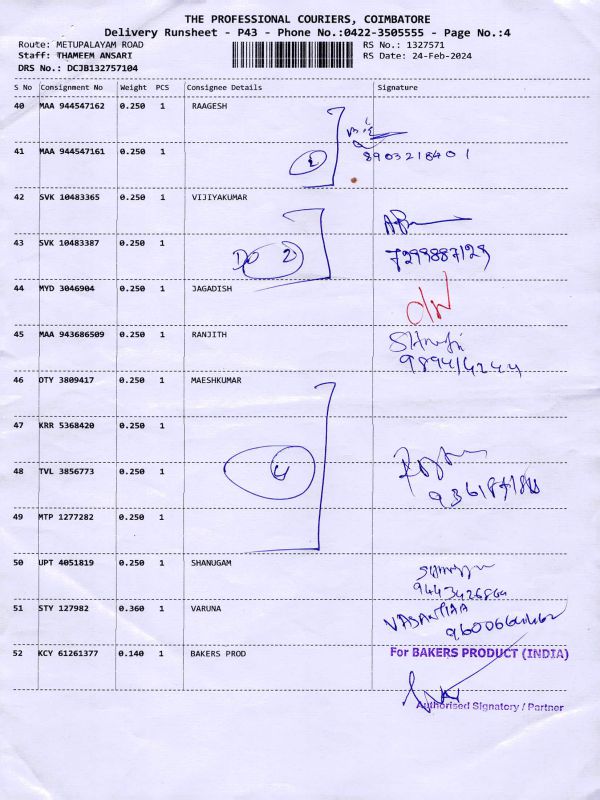 THE PROFESSIONAL COURIERS, COIMBATORE
Delivery Runsheet - P43 - Phone No.:0422-3505555 - Page No.:4
Route: METUPALAYAM ROAD RS No.: 1327571
Staff: THAMEEM ANSARI RS Date: 24-Feb-2024
DRS No.: DCJB132757104
S No Consignment No Weight PCS Consignee Details Signature
40 MAA 944547162 0.250 1 RAAGESH
41 MAA 944547161 0.250 1 2 8903218401
42 SVK 10483365 0.250 1 VIJIYAKUMAR
43 SVK 10483387 0.250 1 2 7299887129
44 MYD 3046904 0.250 1 JAGADISH
45 MAA 943686509 0.250 1 RANJITH
46 OTY 3809417 0.250 1 MAESHKUMAR
47 KRR 5368420 0.250 1
48 TVL 3856773 0.250 1 4
49 MTP 1277282 0.250 1
50 UPT 4051819 0.250 1 SHANUGAM
51 STY 127982 0.360 1 VARUNA
52 KCY 61261377 0.140 1 BAKERS PROD For BAKERS PRODUCT (INDIA)
Authorised Signatory / Partner